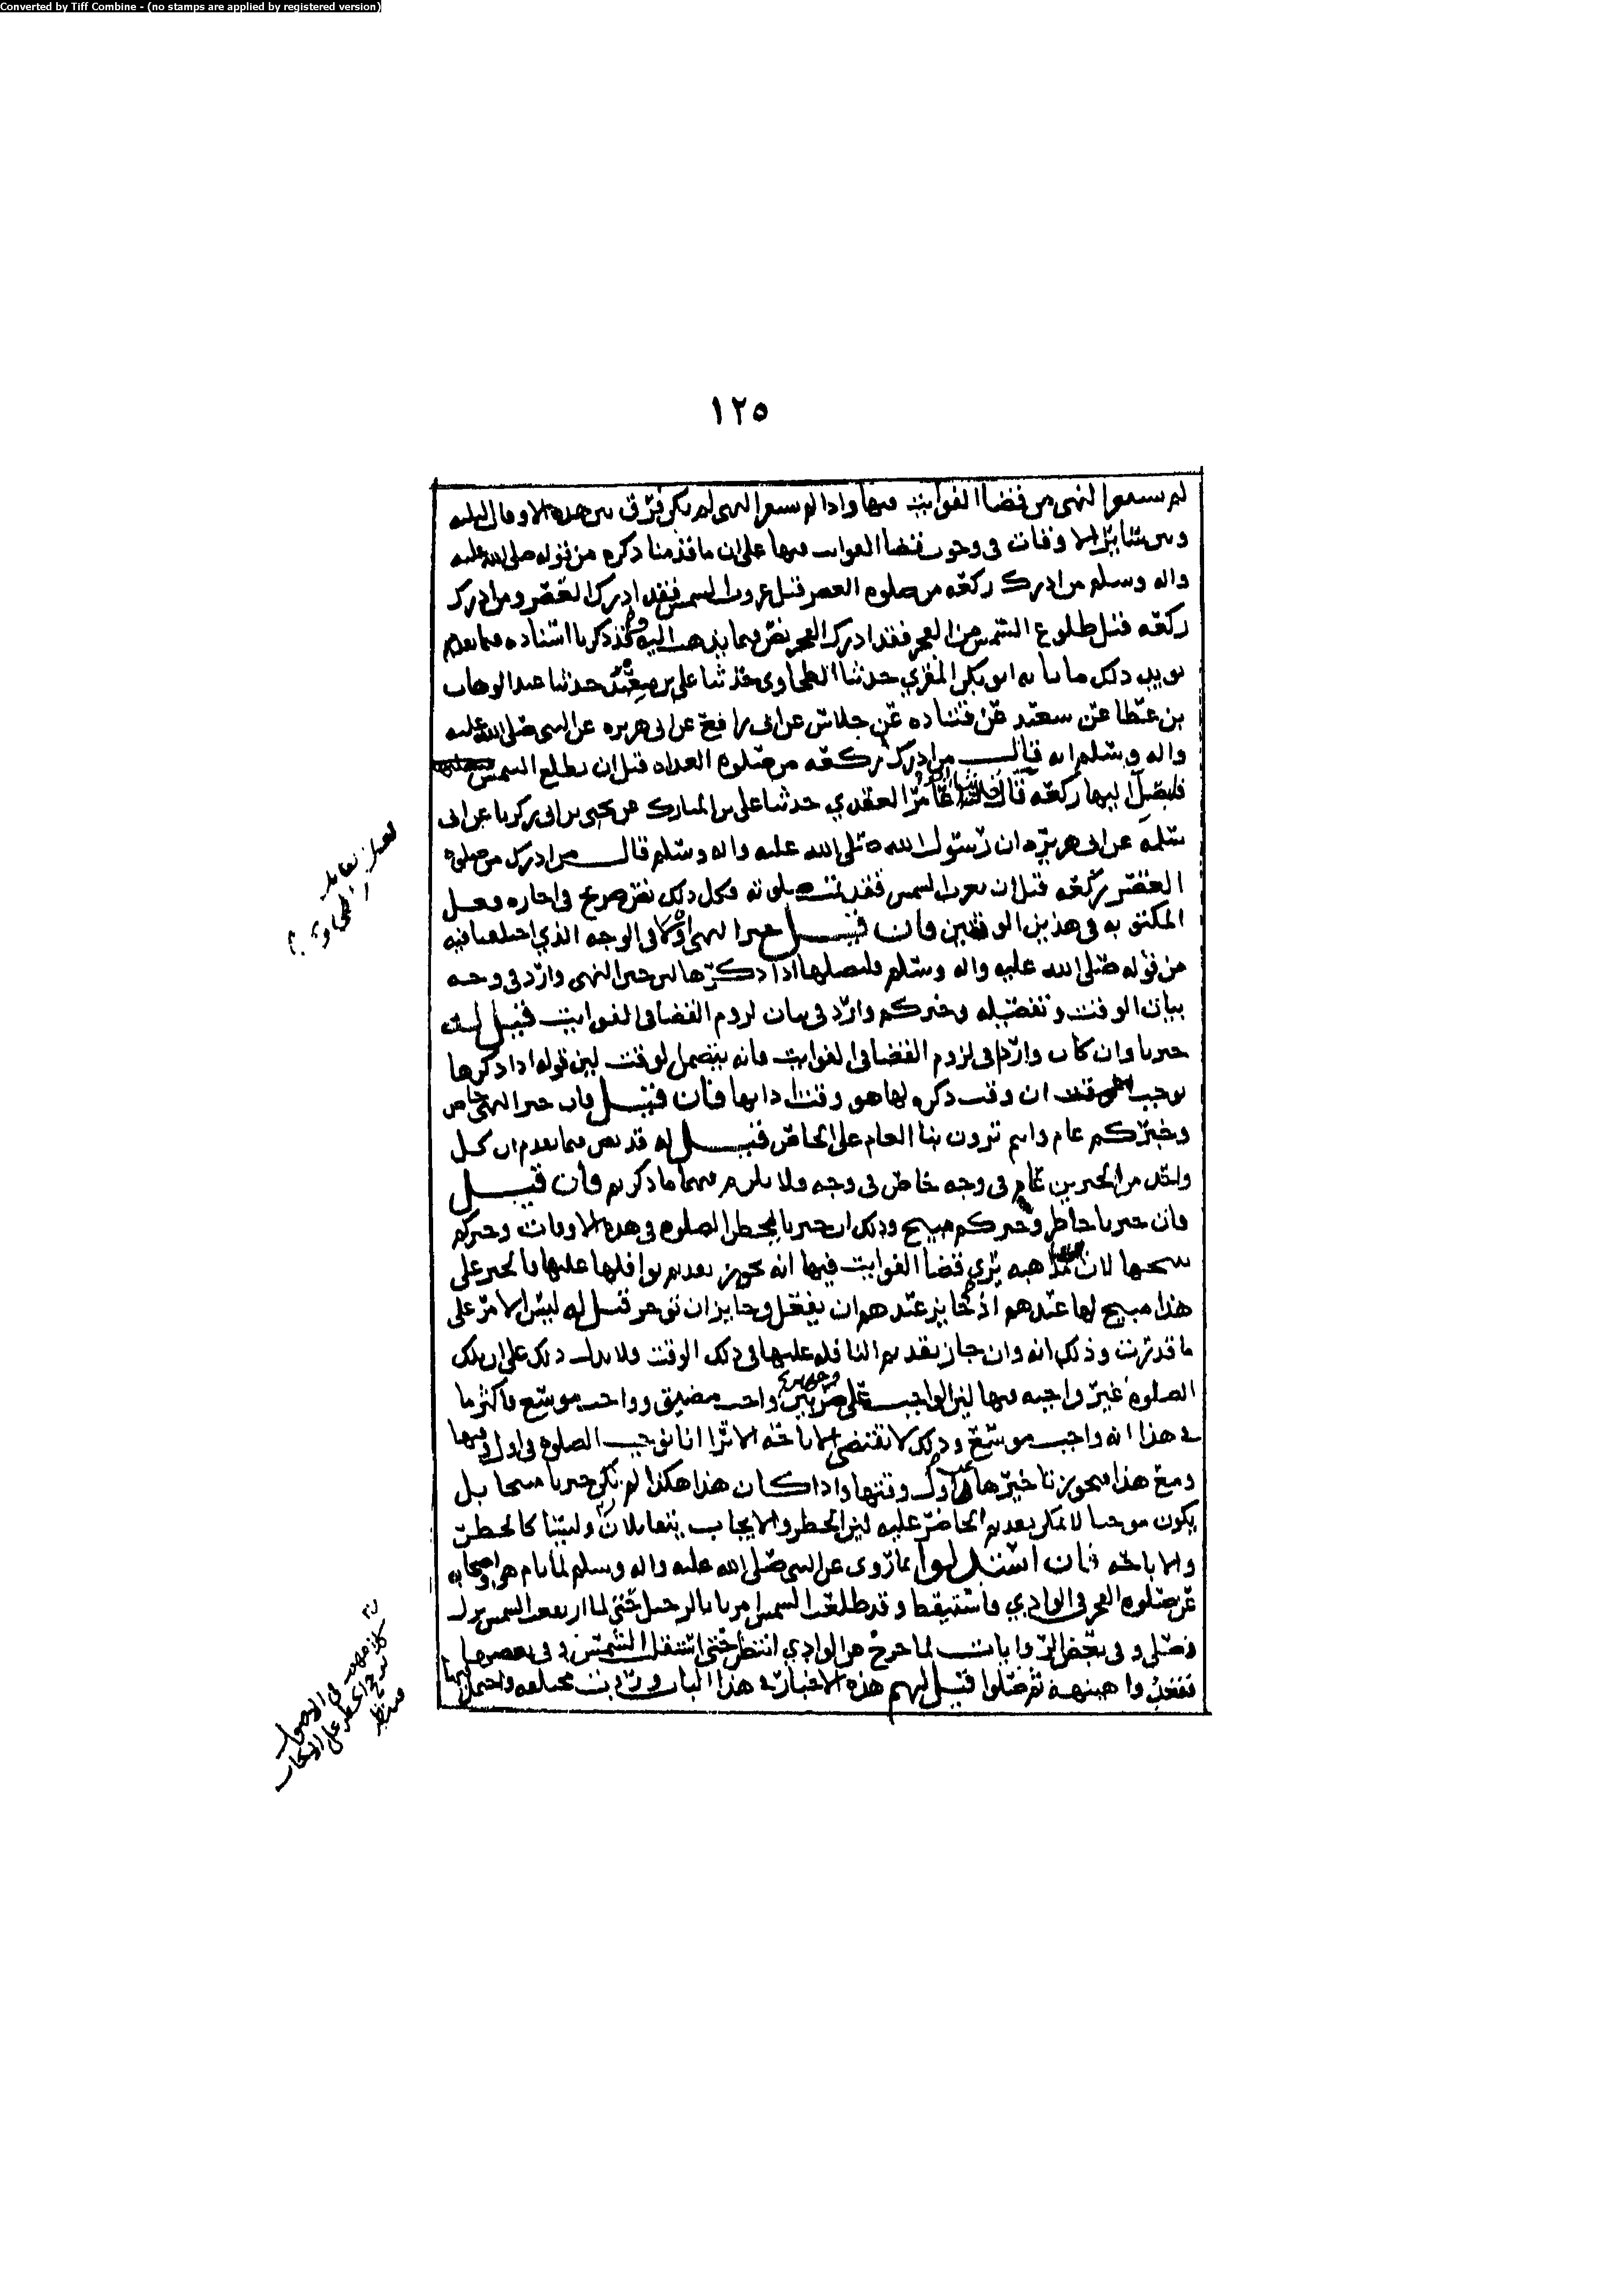 Converted by Tiff Combine - (no stamps are applied by registered version)
١٢٥
لم يسمعوا النهي من قضا الفوايت فيها واذا لم يسمعوا النهي لم يكن فرق بين هذه الاوقات
وبين ساير الاوقات في وجوب قضا الفوايت فيها على ان ما قدمنا ذكره من قوله صلى الله عليه
واله وسلم من ادرك ركعه من صلوه العصر قبل غروب الشمس فقد ادرك العصر ومن ادرك
ركعه قبل طلوع الشمس من الفجر فقد ادرك الفجر نص فيما يذهب اليه وقد ذكرنا اسناده فيما تقدم
يويد ذلك ما نا به ابو بكر المقري حدثنا الطحاوي حدثنا علي بن معبد حدثنا عبد الوهاب
بن عطا عن سعيد عن قتاده عن خلاس عن ابي رافع عن ابي هريره عن النبي صلى الله عليه
واله وسلم انه قال من ادرك ركعه من صلوه الغداه قبل ان تطلع الشمس
فليصل اليها ركعه قال حدثنا ابو عامر العقدي حدثنا علي بن المبارك عن يحيى بن ابي كريا عن ابي
سلمه عن ابي هريره ان رسول الله صلى الله عليه واله وسلم قال من ادرك من صلوه
العصر ركعه قبل ان تغرب الشمس فقد تمت صلوته وكل ذلك نص صريح في اجازه فعل
المكتوبه في هذين الوقتين فان قيل خبر النهي اولى في الوجه الذي اختلفنا فيه
من قوله صلى الله عليه واله وسلم فليصلها اذا ذكرها لان خبر النهي وارد في وجه
بيان الوقت وتفصيله وخبركم وارد في بيان لزوم القضا في الفوايت قيل له
خبرنا وان كان واردا في لزوم القضا في الفوايت فانه يتضمن الوقت لان قوله اذا ذكرها
يوجب ان وقت ذكره لها هو وقت ادايها فان قيل فان خبر النهي خاص
وخبركم عام وانتم ترون بنا العام على الخاص قيل له قد مضى فيما تقدم ان كل
واحد من الخبرين عام في وجه خاص في وجه ولا يلزم فيهما ما ذكرتم فان قيل
فان خبرنا حاظر وخبركم مبيح وذلك ان خبرنا يحظر الصلوه في هذه الاوقات وخبركم
يبيحها لان مذهبه يرى قضا الفوايت فيها انه يجوز تقديم نوافلها عليها فالخبر على
هذا مبيح لها عندهم اذ جايز عندهم ان يفعل وجايز ان توخر قيل له ليس الامر على
ما قدرت وذلك انه وان جاز تقديم النافله عليها في ذلك الوقت فلا يدل ذلك على ان تلك
الصلوه غير واجبه فيها لان الواجب على ضربين واجب مضيق وواجب موسع فاكثر ما
في هذا انه واجب موسع وذلك لا يقتضي الاباحه الا ترا انا نوجب الصلوه في اول وقتها
ومع هذا فيجوز تاخيرها عن اول وقتها واذا كان هذا هكذا لم يكن خبرنا مبيحا بل
يكون موجبا لا يمكن تقديم الحاظر عليه لان الحظر والايجاب يتقابلان وليسا كالحظر
والاباحه فان استدلوا بما روى عن النبي صلى الله عليه واله وسلم لما نام هو واصحابه
عن صلوه الفجر في الوادي فاستيقظ وقد طلعت الشمس امرنا بالرحيل حتى لما ارتفعت الشمس نزل
فصلى وفي بعض الروايات لما خرج من الوادي انتظر حتى استقلت الشمس وفي بعضها
فقعد هنيهه ثم صلوا قيل لهم هذه الاخبار في هذا الباب وردت مختلفه واحتمل انها